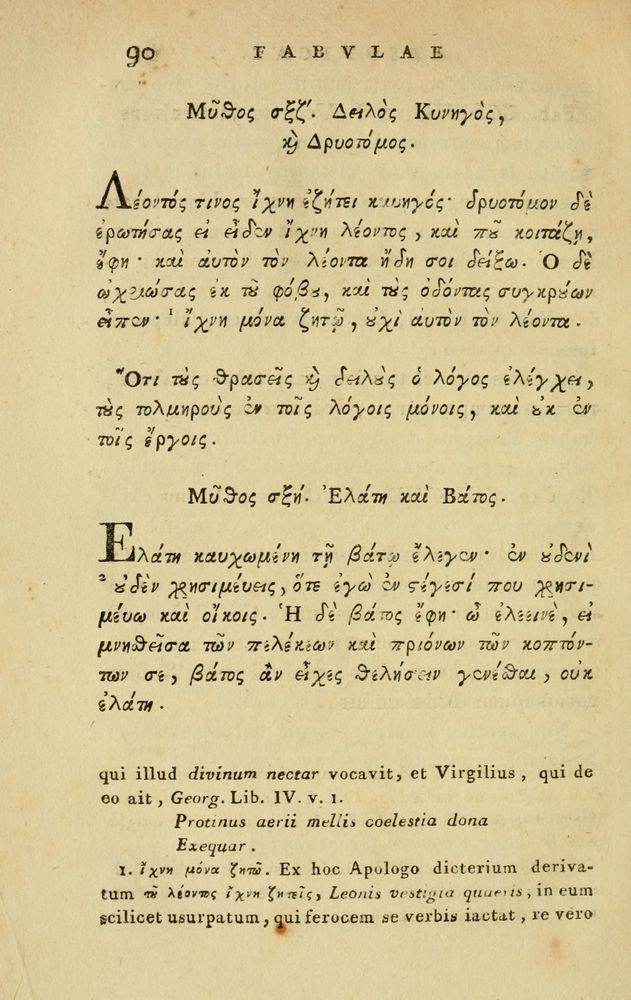 90 FABVLAE
Μῦθος σξζʹ. Δειλὸς Κυνηγὸς,
ϗ Δρυοτόμος.
Λέοντός τινος ἴχνη ἐζήτει κυνηγός· δρυοτόμον δὲ
ἐρωτήσας εἰ εἶδεν ἴχνη λέοντος, καὶ ποῦ κοιτάζῃ,
ἔφη· καὶ αὐτὸν τὸν λέοντα ἤδη σοι δείξω. Ὁ δὲ
ὠχριώσας ἐκ τοῦ φόβου, καὶ τοὺς ὀδόντας συγκρούων
εἶπεν· ¹ ἴχνη μόνα ζητῶ, οὐχὶ αὐτὸν τὸν λέοντα.
Ὅτι τοὺς θρασεῖς ϗ δειλοὺς ὁ λόγος ἐλέγχει,
τοὺς τολμηροὺς ἐν τοῖς λόγοις μόνοις, καὶ οὐκ ἐν
τοῖς ἔργοις.
Μῦθος σξή. Ἐλάτη καὶ Βάτος.
Ἐλάτη καυχωμένη τῇ βάτῳ ἔλεγεν· ἐν οὐδενὶ
² οὐδὲν χρησιμεύεις, ὅτε ἐγὼ ἐν στέγεσί που χρησι-
μεύω καὶ οἴκοις. Ἡ δὲ βάτος ἔφη· ὦ ἐλεεινὲ, εἰ
μνηθεῖσα τῶν πελέκεων καὶ πριόνων τῶν κοπτόν-
των σε, βάτος ἂν εἶχες θελήσειν γενέσθαι, οὐκ
ἐλάτη.
qui illud divinum nectar vocavit, et Virgilius, qui de
eo ait, Georg. Lib. IV. v. 1.
Protinus aerii mellis coelestia dona
Exequar.
1. ἴχνη μόνα ζητῶ. Ex hoc Apologo dicterium deriva-
tum τοῦ λέοντος ἴχνη ζητεῖς, Leonis vestigia quaeris, in eum
scilicet usurpatum, qui ferocem se verbis iactat, re vero